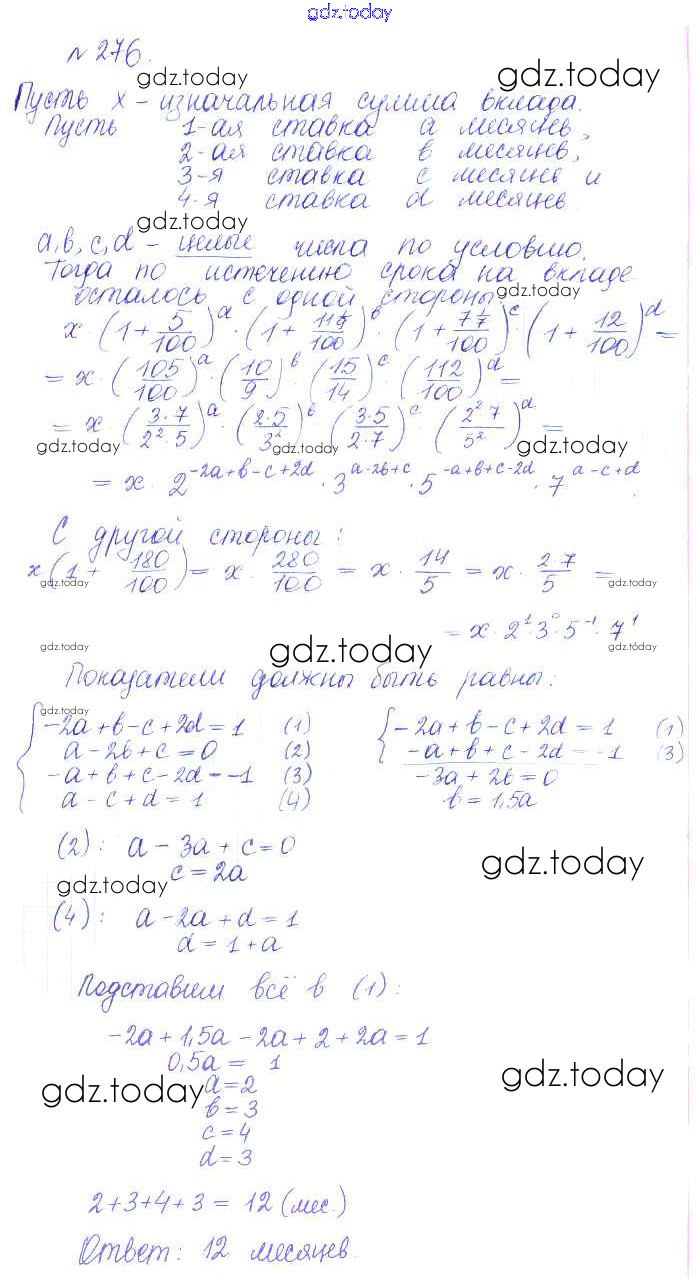 gdz.today
№ 276.
gdz.today gdz.today
Пусть x - изначальная сумма вклада.
Пусть 1-ая ставка a месяцев,
2-ая ставка b месяцев,
3-я ставка c месяцев и
4-я ставка d месяцев.
gdz.today
a, b, c, d - целые числа по условию.
Тогда по истечению срока на вкладе
осталось с одной стороны: gdz.today
x · (1 + 5/100)^a · (1 + 11 1/9/100)^b · (1 + 7 1/7/100)^c · (1 + 12/100)^d =
= x · (105/100)^a · (10/9)^b · (15/14)^c · (112/100)^d =
= x · (3·7/2²·5)^a · (2·5/3²)^b · (3·5/2·7)^c · (2²·7/5²)^d =
gdz.today gdz.today gdz.today
= x · 2^(-2a+b-c+2d) · 3^(a-2b+c) · 5^(-a+b+c-2d) · 7^(a-c+d).
С другой стороны:
x(1 + 180/100) = x · 280/100 = x · 14/5 = x · 2·7/5 =
gdz.today gdz.today gdz.today
= x · 2^1 · 3^0 · 5^-1 · 7^1
gdz.today gdz.today gdz.today
Показатели должны быть равны:
gdz.today
-2a + b - c + 2d = 1 (1) -2a + b - c + 2d = 1 (1)
a - 2b + c = 0 (2) -a + b + c - 2d = -1 (3)
-a + b + c - 2d = -1 (3) -3a + 2b = 0
a - c + d = 1 (4) b = 1,5a
(2): a - 3a + c = 0
c = 2a
gdz.today gdz.today
(4): a - 2a + d = 1
d = 1 + a
Подставим всё в (1):
-2a + 1,5a - 2a + 2 + 2a = 1
0,5a = 1
gdz.today gdz.today
a = 2
b = 3
c = 4
d = 3
2 + 3 + 4 + 3 = 12 (мес.)
Ответ: 12 месяцев.